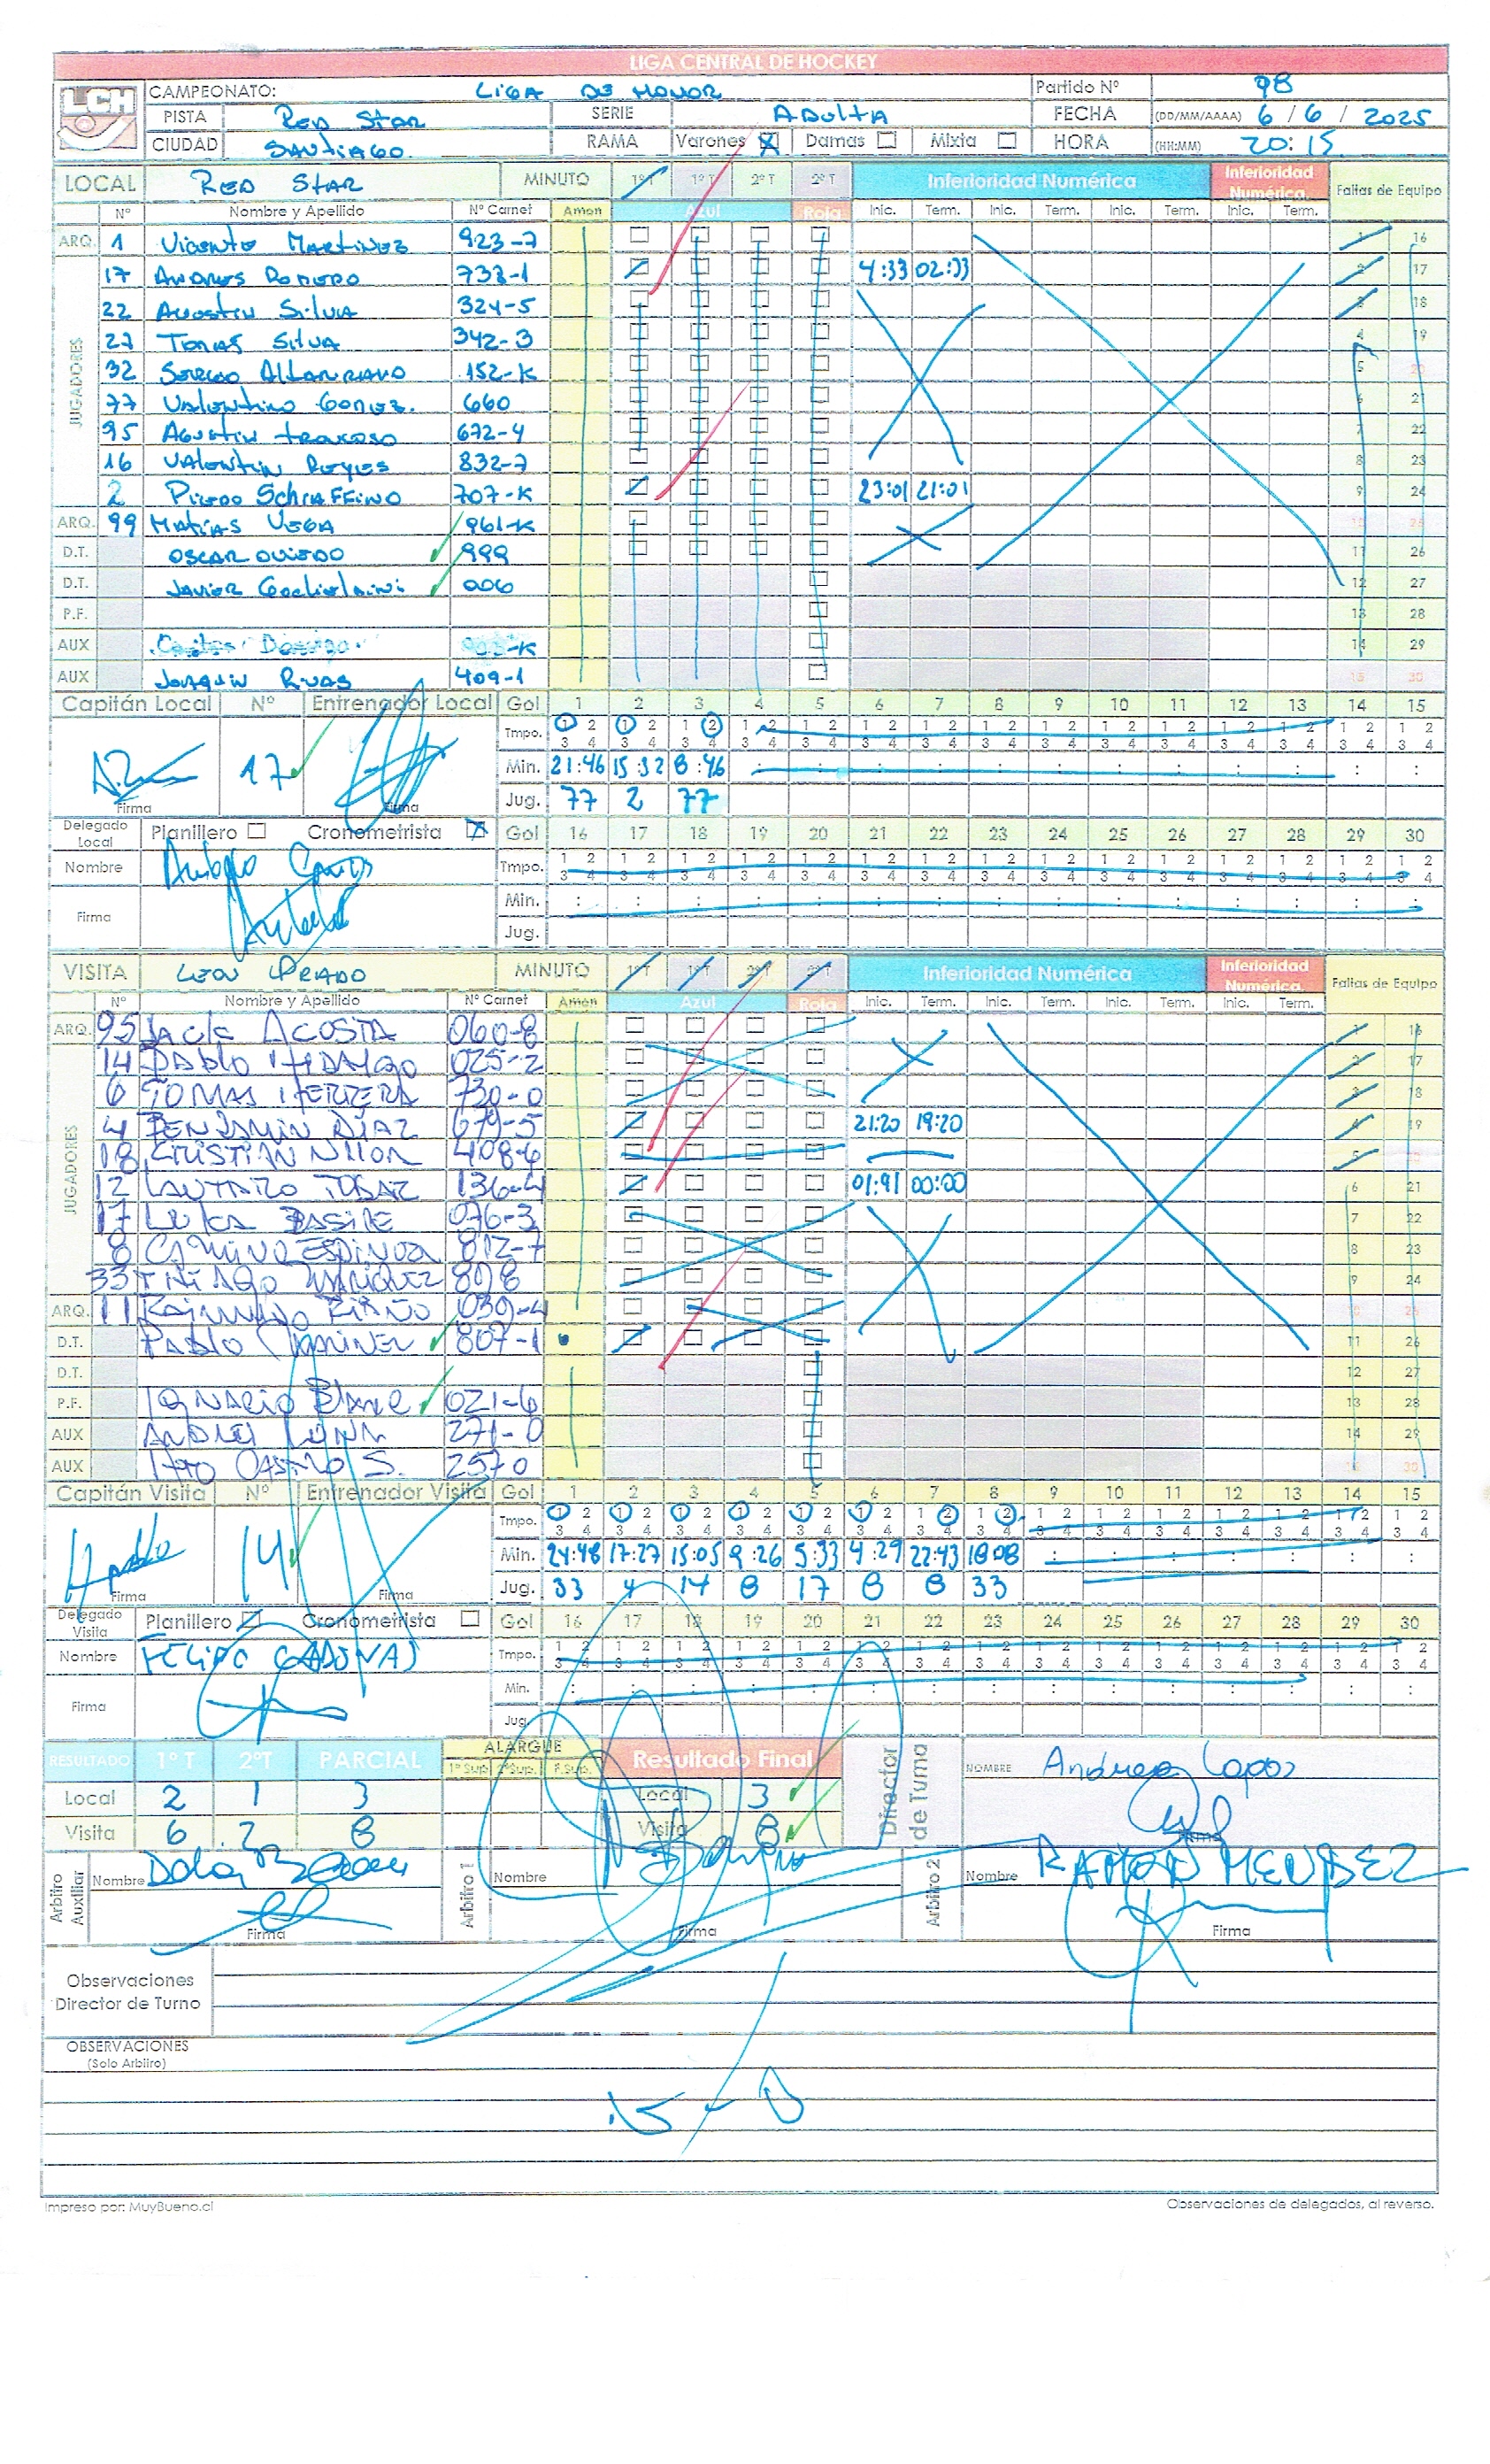 LIGA CENTRAL DE HOCKEY
LCH CAMPEONATO: LIGA DE HONOR Partido Nº 98
PISTA RED STAR SERIE ADULTA FECHA (DD/MM/AAAA) 6 / 6 / 2025
CIUDAD SANTIAGO. RAMA Varones Damas Mixta HORA (HH:MM) 20:15
LOCAL RED STAR MINUTO 1º T 1º T 2º T 2º T Inferioridad Numérica Inferioridad Numérica Faltas de Equipo
Nº Nombre y Apellido Nº Carnet Amon Azul Roja Inic. Term. Inic. Term. Inic. Term. Inic. Term.
ARQ. 1 Vicente Martinez 923-7 1 16
JUGADORES
17 Andres Romero 733-1 4:33 02:33 2 17
22 Agustin Silva 324-5 3 18
27 Tomas Silva 342-3 4 19
32 Sergio Altamirano 152-K 5 20
77 Valentino Gomez. 660 6 21
95 Agustin Troncoso 672-4 7 22
16 Valentin Reyes 832-7 8 23
2 Piero Schiaffino 707-K 23:01 21:01 9 24
ARQ. 99 Matias Vega 961-K 10 25
D.T. Oscar Oviedo 999 11 26
D.T. Javier 006 12 27
P.F. 13 28
AUX -K 14 29
AUX Joaquin Rivas 409-1 15 30
Capitán Local Nº Entrenador Local Gol 1 2 3 4 5 6 7 8 9 10 11 12 13 14 15
Tmpo. 1 2 1 2 1 2 1 2 1 2 1 2 1 2 1 2 1 2 1 2 1 2 1 2 1 2 1 2 1 2
3 4 3 4 3 4 3 4 3 4 3 4 3 4 3 4 3 4 3 4 3 4 3 4 3 4 3 4 3 4
17 Min. 21:46 15:32 8:46 : : : : : : : : : : : :
Firma Firma Jug. 77 2 77
Delegado Local Planillero Cronometrista Gol 16 17 18 19 20 21 22 23 24 25 26 27 28 29 30
Nombre Tmpo. 1 2 1 2 1 2 1 2 1 2 1 2 1 2 1 2 1 2 1 2 1 2 1 2 1 2 1 2 1 2
3 4 3 4 3 4 3 4 3 4 3 4 3 4 3 4 3 4 3 4 3 4 3 4 3 4 3 4 3 4
Firma Min. : : : : : : : : : : : : : : :
Jug.
VISITA LEON PRADO MINUTO 1º T 1º T 2º T 2º T Inferioridad Numérica Inferioridad Numérica Faltas de Equipo
Nº Nombre y Apellido Nº Carnet Amon Azul Roja Inic. Term. Inic. Term. Inic. Term. Inic. Term.
ARQ. 95 JACK ACOSTA 060-8 1 16
JUGADORES
14 PABLO HIDALGO 025-2 2 17
6 TOMAS HERRERA 730-0 3 18
4 BENJAMIN DIAZ 679-5 21:20 19:20 4 19
18 CRISTIAN 408-6 5 20
12 LAUTARO TOBAR 136-4 01:91 00:00 6 21
17 LUKA BASILE 076-3 7 22
8 CAMILO ESPINOZA 812-7 8 23
33 808 9 24
ARQ. 11 RAIMUNDO 039-4 10 25
D.T. PABLO 807-1 11 26
D.T. 12 27
P.F. IGNACIO 021-6 13 28
AUX 271-0 14 29
AUX CASTRO S. 257-0 15 30
Capitán Visita Nº Entrenador Visita Gol 1 2 3 4 5 6 7 8 9 10 11 12 13 14 15
Tmpo. 1 2 1 2 1 2 1 2 1 2 1 2 1 2 1 2 1 2 1 2 1 2 1 2 1 2 1 2 1 2
3 4 3 4 3 4 3 4 3 4 3 4 3 4 3 4 3 4 3 4 3 4 3 4 3 4 3 4 3 4
14 Min. 24:48 17:27 15:05 9:26 5:33 4:29 22:43 18:08 : : : : : : :
Firma Firma Jug. 33 4 14 8 17 8 8 33
Delegado Visita Planillero Cronometrista Gol 16 17 18 19 20 21 22 23 24 25 26 27 28 29 30
Nombre Tmpo. 1 2 1 2 1 2 1 2 1 2 1 2 1 2 1 2 1 2 1 2 1 2 1 2 1 2 1 2 1 2
3 4 3 4 3 4 3 4 3 4 3 4 3 4 3 4 3 4 3 4 3 4 3 4 3 4 3 4 3 4
Firma Min. : : : : : : : : : : : : : : :
Jug.
RESULTADO 1º T 2º T PARCIAL ALARGUE 1º Sup. 2º Sup. F. Sup. Resultado Final Director de Turno NOMBRE Andrea
Local 2 1 3 Local 3
Visita 6 2 8 Visita 8 Firma
Arbitro Auxiliar Nombre Arbitro 1 Nombre Arbitro 2 Nombre RAMON MENDEZ
Firma Firma Firma
Observaciones Director de Turno
OBSERVACIONES
(Solo Arbitro)
Impreso por: MuyBueno.cl Observaciones de delegados, al reverso.